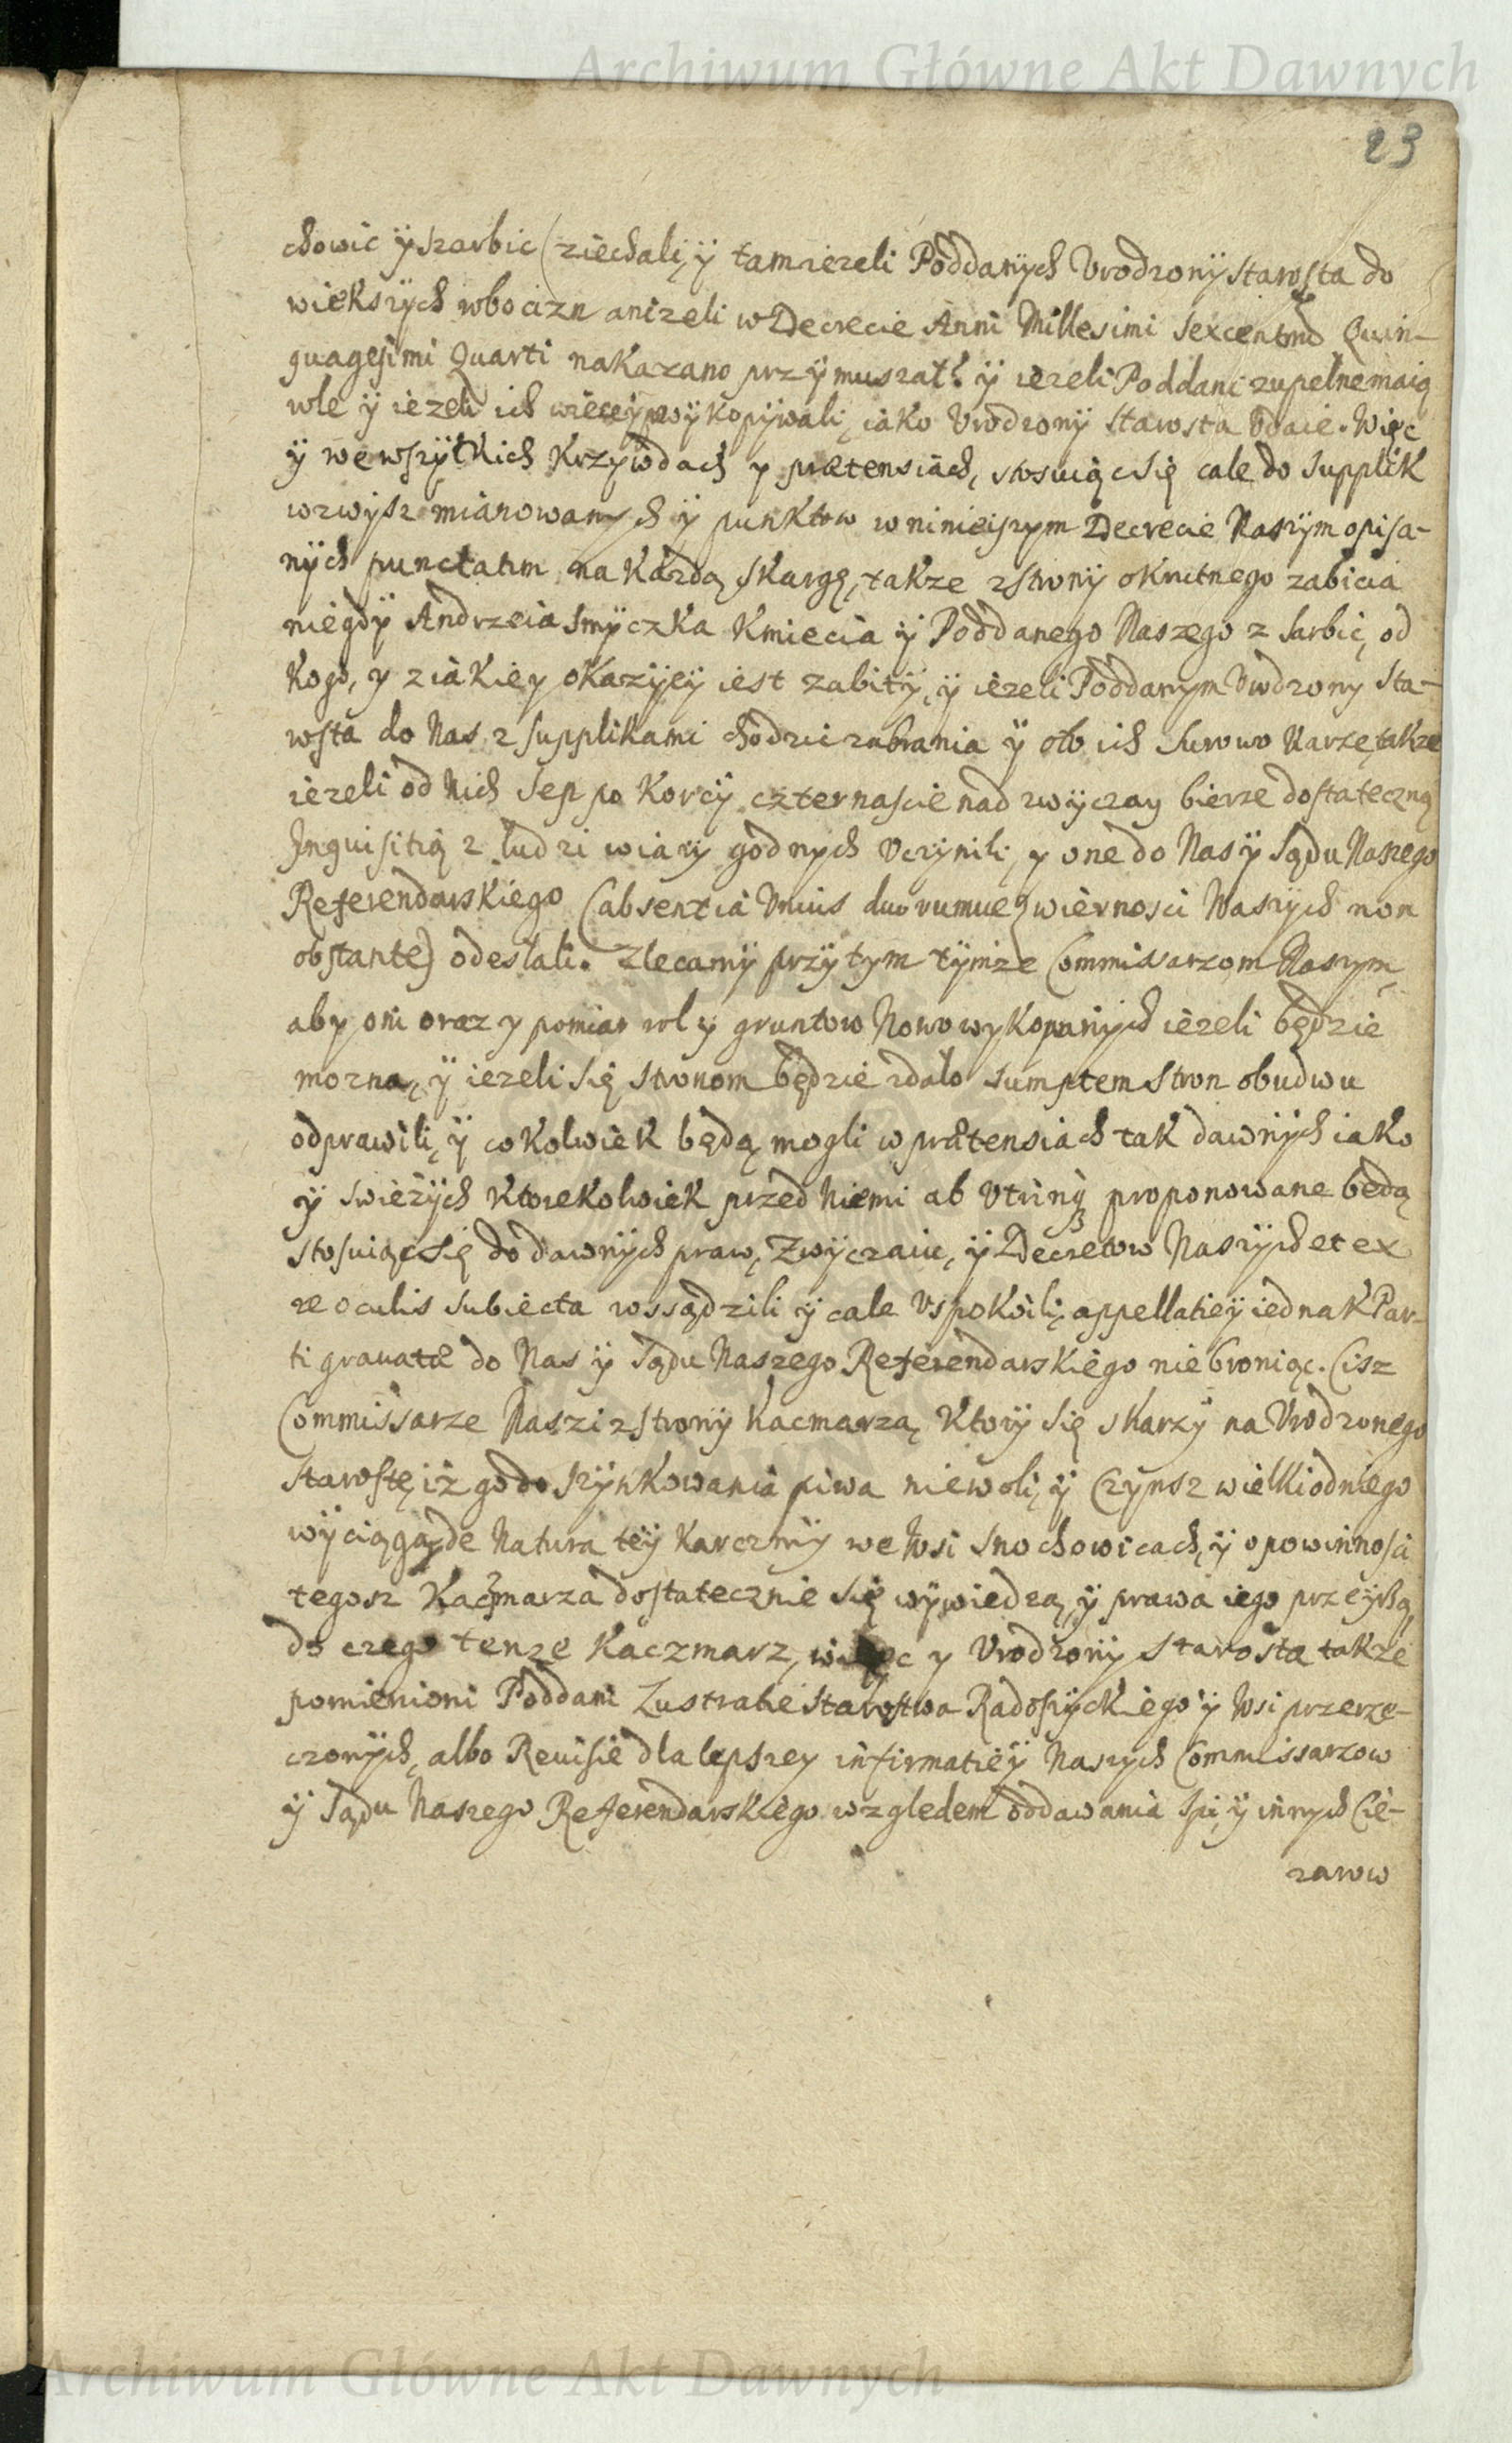 Archiwum Główne Akt Dawnych
23
chowic ÿ Szarbic (ziechali, ÿ tam iezeli Poddanÿch Vrodzonÿ Starosta do
wiekszÿch robocizn anizeli w Decrecie Anni Millesimi Sexcentmo Quin-
quagesimi Quarti nakazano przÿmuszał? ÿ iezeli Poddani zupełne maią
role ÿ iezeli ich wiecey powÿkopÿwali, iako Vrodzonÿ Starosta Vdaie. Więc
ÿ we wszÿtkich Krzÿwdach y prætensiach, stosuiąc się cale do Supplik
wzwÿsz mianowanych ÿ punktow w ninieiszym Decrecie Naszÿm opisa-
nÿch punctatim na Kazdą Skargę, takze z stronÿ okrutnego zabicia
niegdÿ Andrzeia Smÿczka Kmiecia ÿ Poddanego Naszego z Sarbic, od
Kogo, y z iakiey okazÿeÿ iest zabitÿ, ÿ iezeli Poddanym Vrodzony Sta-
rosta do Nas z Supplikami chodzic zabrania ÿ oto ich Surowo Karze, takze
iezeli od Nich Sep po Korcÿ czternascie nad zwÿczay bierze dostateczną
Inquisitią z ludzi wiary godnych Vczÿnili, y one do Nas ÿ Sądu Naszego
Referendarskiego (absentia Vnius duorumue wiernosci Waszÿch non
obstante) odesłali. Zlecamÿ przÿtym tÿmze Commissarzom Naszÿm,
aby oni oraz y pomiar rol y gruntow Nowo wykopanÿch iezeli będzie
mozna, ÿ iezeli się stronom będzie zdało sumptem stron obudwu
odprawili, ÿ cokolwiek będą mogli w prætensiach tak dawnÿch iako
ÿ swiezÿch Ktorekolwiek przed Niemi ab Vtrinq; proponowane będą
stosuiąc się do dawnÿch praw, Zwÿczaiu, ÿ Decretow Naszÿch et ex
re oculis subiecta rossądzili ÿ cale Vspokoili, appellatieÿ iednak Par-
ti grauatæ do Nas ÿ Sądu Naszego Referendarskiego nie broniąc. Cisz
Commissarze Naszi z stronÿ Kacmarza, Ktorÿ się skarzÿ na Vrodzonego
Starostę, iż go do szÿnkowania piwa niewoli, ÿ Czÿnsz wielki od niego
wÿciąga, de Natura teÿ Karczmÿ we Wsi Snochowicach, ÿ o powinnosci
tegosz Kaczmarza dostatecznie się wÿwiedzą, ÿ prawa iego przeÿrzą,
do czego tenze Kaczmarz, więc y Vrodzonÿ Starosta takze
pomienioni Poddani Lustratie Starostwa Radoszÿckiego ÿ Wsi przerze-
czonÿch, albo Reuisie dla lepszey informatieÿ Naszych Commissarzow
ÿ Sądu Naszego Referendarskiego wzgledem oddawania Spi, ÿ innych Cię-
zarow
Archiwum Główne Akt Dawnych